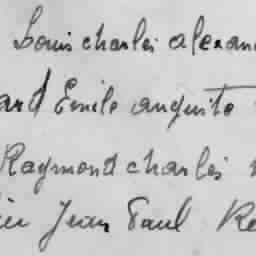 Louis charles alexan
ard Emile auguste
Raymond charles
Jean Paul Re